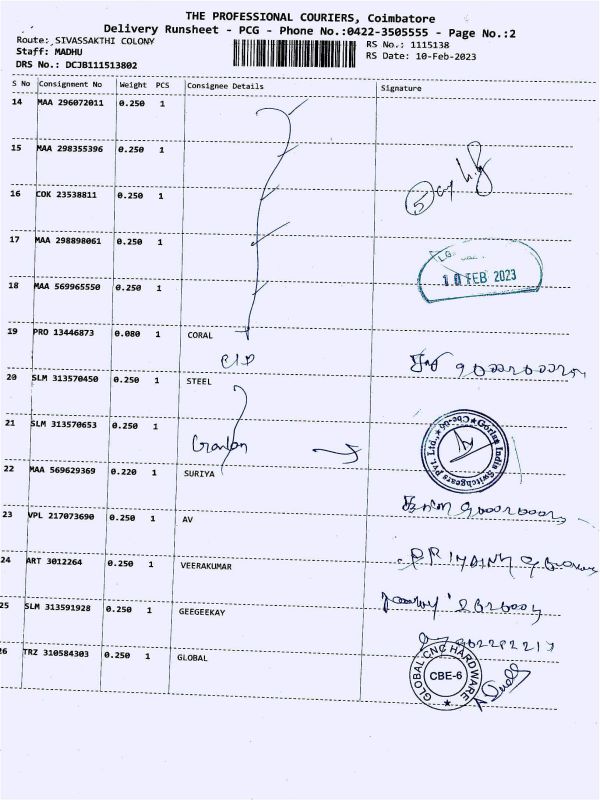 THE PROFESSIONAL COURIERS, Coimbatore
Delivery Runsheet - PCG - Phone No.:0422-3505555 - Page No.:2
Route: SIVASSAKTHI COLONY
RS No.: 1115138
Staff: MADHU
RS Date: 10-Feb-2023
DRS No.: DCJB111513802
S No Consignment No Weight PCS Consignee Details Signature
14 MAA 296072011 0.250 1
15 MAA 298355396 0.250 1
16 COK 23538811 0.250 1
5
17 MAA 298898061 0.250 1
10 FEB 2023
18 MAA 569965550 0.250 1
19 PRO 13446873 0.080 1 CORAL
20 SLM 313570450 0.250 1 STEEL
21 SLM 313570653 0.250 1
Gorlan India Switchgears Pvt. Ltd., ★ Cbe-06 ★
22 MAA 569629369 0.220 1 SURIYA
23 VPL 217073690 0.250 1 AV
24 ART 3012264 0.250 1 VEERAKUMAR
25 SLM 313591928 0.250 1 GEEGEEKAY
26 TRZ 310584303 0.250 1 GLOBAL
GLOBAL CNC HARDWARE
CBE-6
★